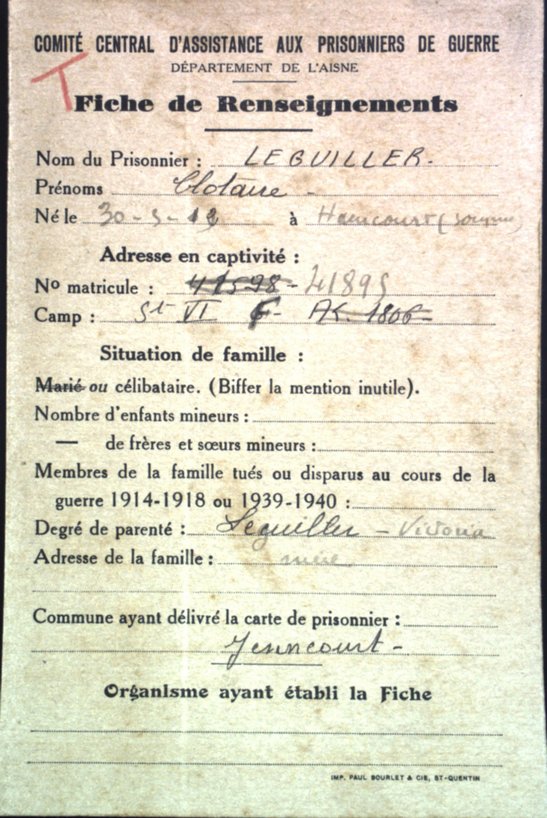 T
COMITÉ CENTRAL D'ASSISTANCE AUX PRISONNIERS DE GUERRE
DÉPARTEMENT DE L'AISNE
Fiche de Renseignements
Nom du Prisonnier : LEGUILLER.
Prénoms Clotaire -
Né le 30-3-19 à (Somme)
Adresse en captivité :
No matricule : 41598 - 41895
Camp : St VI AK. 1806-
Situation de famille :
Marié ou célibataire. (Biffer la mention inutile).
Nombre d'enfants mineurs :
— de frères et sœurs mineurs :
Membres de la famille tués ou disparus au cours de la
guerre 1914-1918 ou 1939-1940 :
Degré de parenté : Leguiller -
Adresse de la famille : mère
Commune ayant délivré la carte de prisonnier :
Jeancourt -
Organisme ayant établi la Fiche
IMP. PAUL BOURLET & CIE, ST-QUENTIN